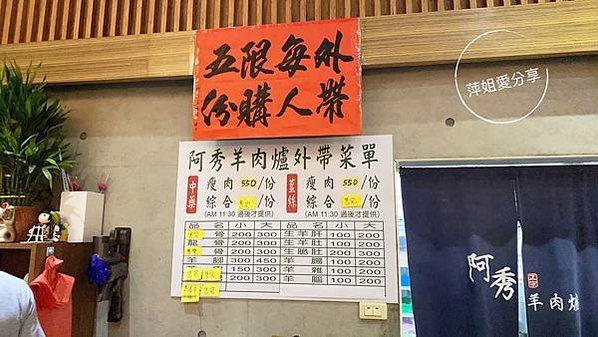 外帶
每人
限購
五份
萍姐愛分享
阿秀羊肉爐外帶菜單
中藥 瘦肉 550/份
綜合 /份
(AM 11:30 過後才提供)
薑絲 瘦肉 550/份
綜合 /份
(AM 11:30 過後才提供)
品名 小 大
骨 200 300
龍骨 200 300
骨 200 300
羊腳 300 450
150 300
200 300
品名 小 大
生羊肝 100 200
生羊肚 100 200
生脆肚 100 200
羊腸 100 200
羊雜 100 200
羊腦 100 200
阿秀
羊肉爐